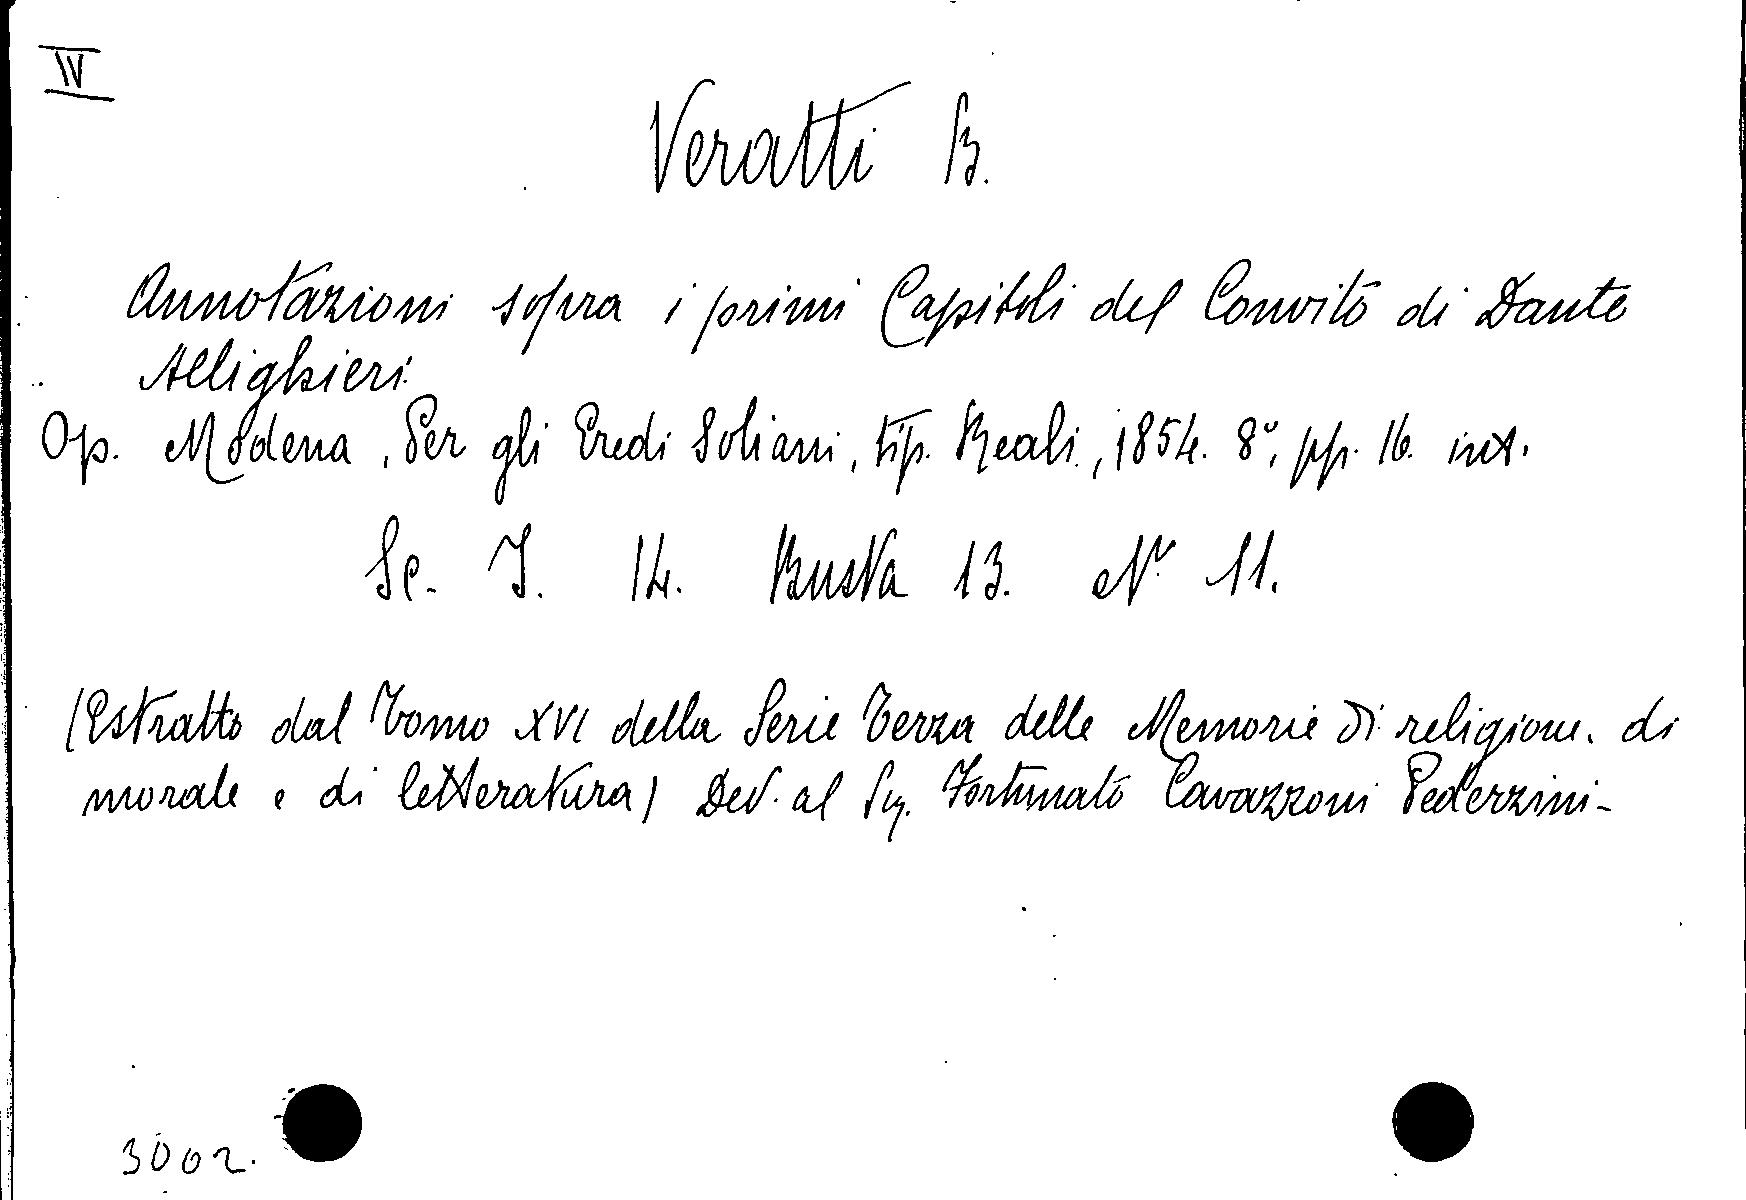 IV
Veratti B.
Annotazioni sopra i primi Capitoli del Convito di Dante
Allighieri
Op. Modena, Per gli Eredi Soliani, tip. Reali, 1854. 8°, pp. 16. int.
Sc. I. 14. Busta 13. N° 11.
(Estratto dal Tomo XVI della Serie Terza delle Memorie di religione. di
morale e di letteratura) Ded. al Sig. Fortunato Cavazzoni Pederzini-
3002.